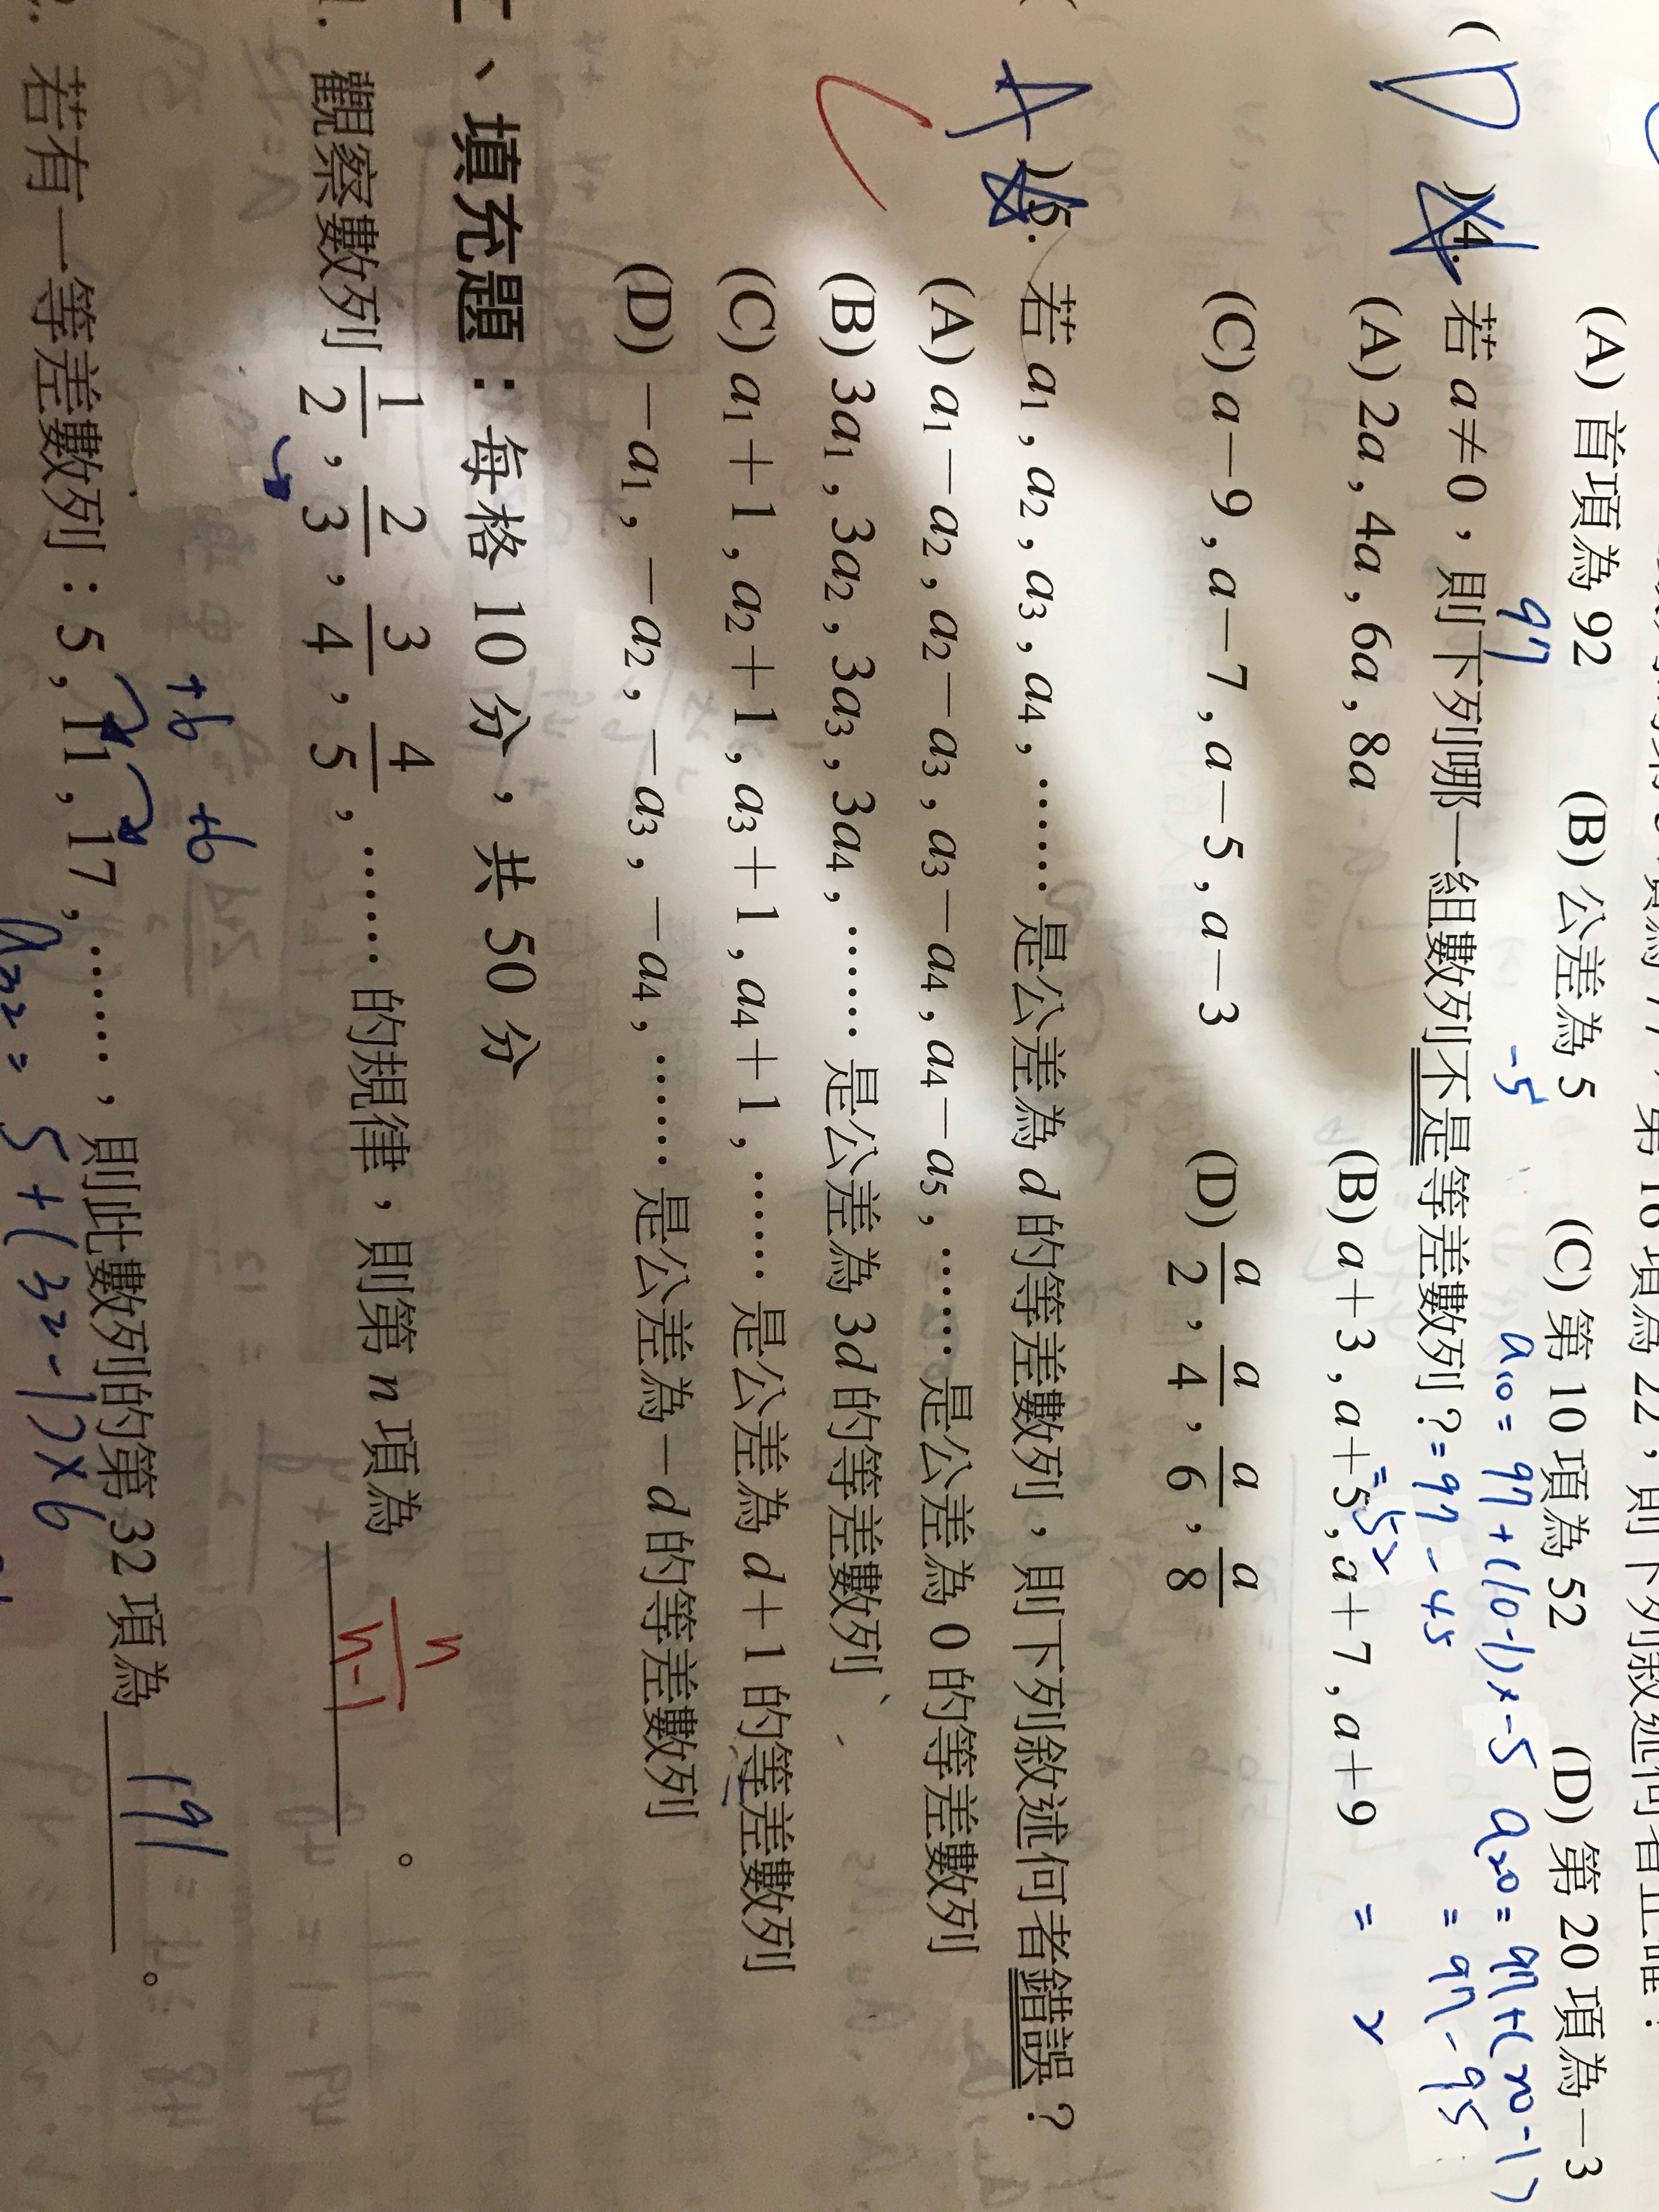 項為 22，則下列敘述何者正確？
(A) 首項為 92 (B) 公差為 5 (C) 第 10 項為 52 (D) 第 20 項為 −3
97 −5 a10 = 97 + (10−1)×−5 a20 = 97 + (20−1)
= 97 − 45 = 97 − 95
= 52 = 2
( D ) 4. 若 a≠0，則下列哪一組數列不是等差數列？
(A) 2a , 4a , 6a , 8a (B) a+3 , a+5 , a+7 , a+9
(C) a−9 , a−7 , a−5 , a−3 (D) a/2 , a/4 , a/6 , a/8
( A ) 5. 若 a1 , a2 , a3 , a4 , …… 是公差為 d 的等差數列，則下列敘述何者錯誤？
(A) a1−a2 , a2−a3 , a3−a4 , a4−a5 , …… 是公差為 0 的等差數列
(B) 3a1 , 3a2 , 3a3 , 3a4 , …… 是公差為 3d 的等差數列
(C) a1+1 , a2+1 , a3+1 , a4+1 , …… 是公差為 d+1 的等差數列
(D) −a1 , −a2 , −a3 , −a4 , …… 是公差為 −d 的等差數列
、填充題：每格 10 分，共 50 分
1. 觀察數列 1/2 , 2/3 , 3/4 , 4/5 , …… 的規律，則第 n 項為 n/n−1 。
+6 +6
若有一等差數列：5 , 11 , 17 , ……，則此數列的第 32 項為 191 。
a32 = 5 + (32−1)×6